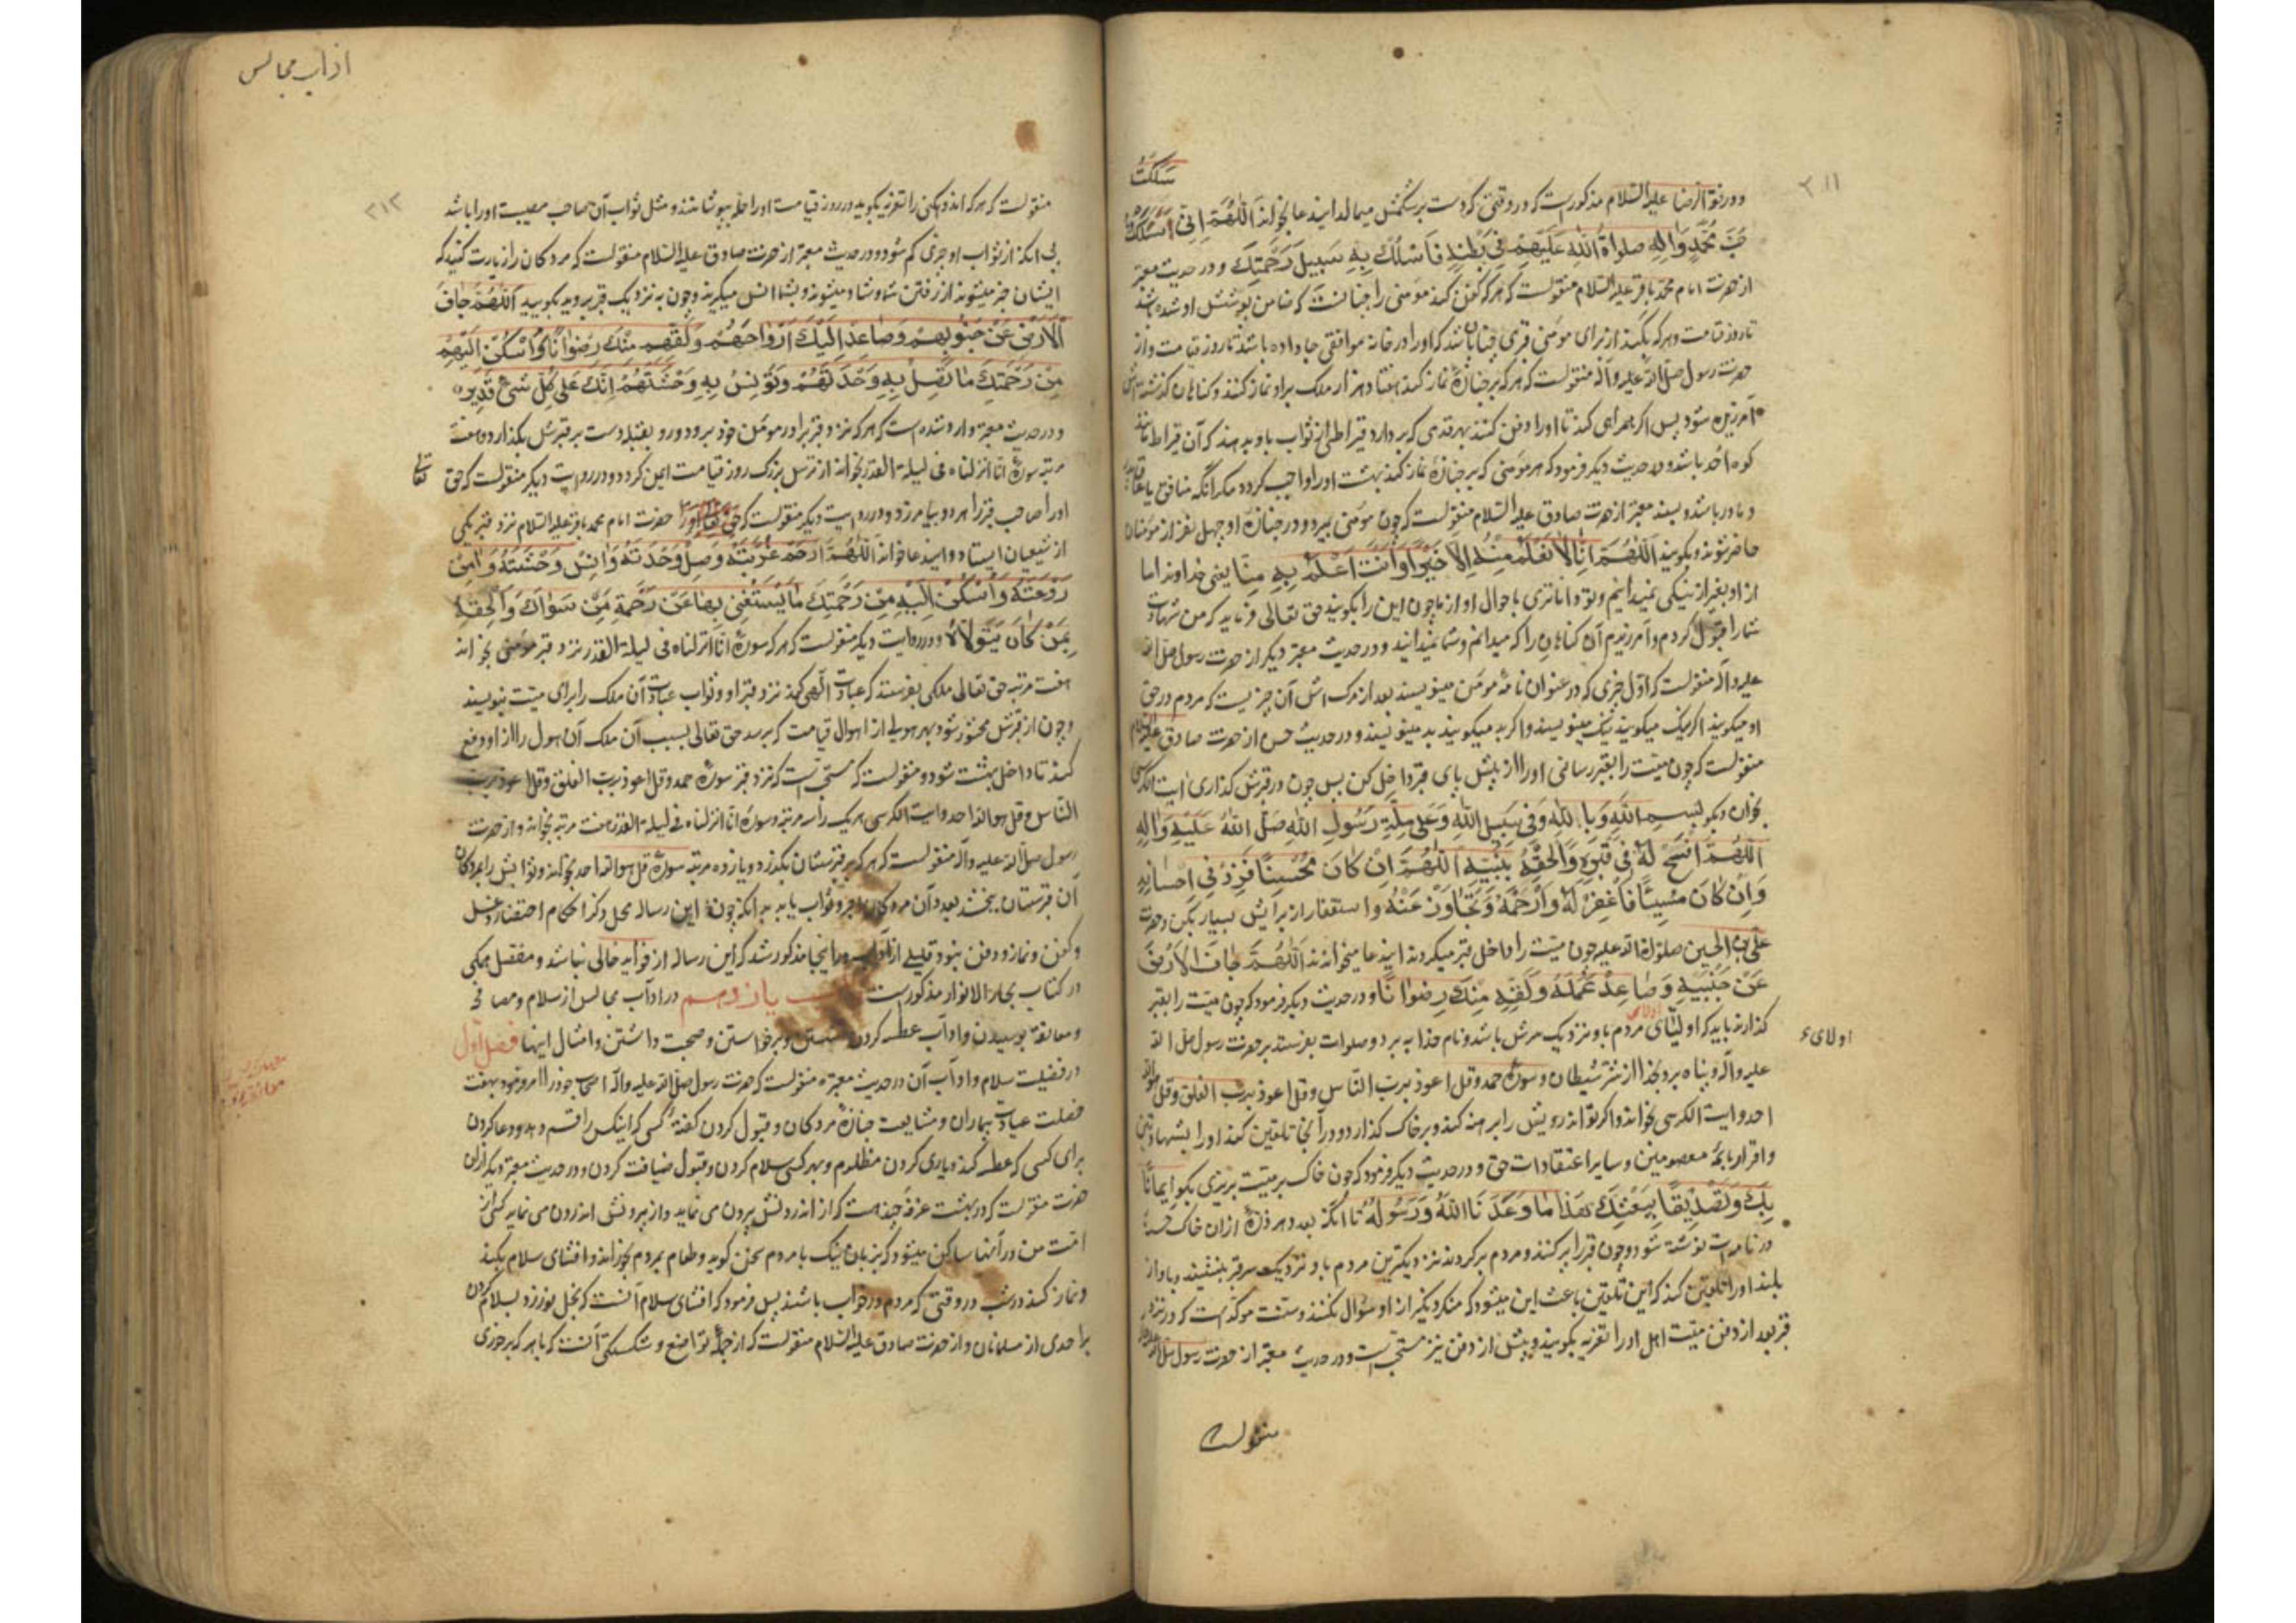 ۳۱۱
سَلَكَتْ
و در فقه الرضا علیه السلام مذکور است که در وقتی که دست بر شکمش میمالد این دعا بخواند اَللّهُمَّ اِنّی اَسْئَلُكَ
حُبَّ مُحَمَّدٍ وَالِهِ صلواةُ اللّهِ عَلَيْهِمْ فی بَطْنِهِ فَاَسْلُكْ بِهِ سَبيلَ رَحْمَتِكَ و در حدیث معتبر
از حضرت امام محمد باقر علیه السلام منقولست که هر که کفن کند مؤمنی را چنانست که ضامن پوشش او شده باشد
تا روز قیامت و هر که بکند از برای مؤمنی قبری چنان باشد که او را در خانه موافقی جا داده باشد تا روز قیامت و از
حضرت رسول صلی الله علیه و آله منقولست که هر که بر جنازهٔ نماز کند هفتاد هزار ملک بر او نماز کنند و گناهان گذشته‌اش
آمرزیده شود پس اگر همراهی کند تا او را دفن کنند بهر قدمی که بردارد قیراطی از ثواب باو بدهند که آن قیراط مانند
کوه احد باشد و در حدیث دیگر فرمود که هر مؤمنی که بر جنازهٔ نماز کند بهشت او را واجب گردد مگر آنکه منافق یا عاق پدر
و مادر باشد و بسند معتبر از حضرت صادق علیه السلام منقولست که چون مؤمنی بمیرد و در جنازهٔ او چهل نفر از مؤمنان
حاضر شوند و بگویند اَللّهُمَّ اِنّا لا نَعْلَمُ مِنْهُ اِلّا خَيْراً وَاَنْتَ اَعْلَمُ بِهِ مِنّا یعنی خداوندا ما
از او بغیر از نیکی نمیدانیم و تو داناتری باحوال او از ما چون این را بگویند حق تعالی فرماید که من شهادت
شما را قبول کردم و آمرزیدم آن گناهان را که میدانم و شما نمیدانید و در حدیث معتبر دیگر از حضرت رسول صلی الله
علیه و آله منقولست که اول چیزی که در عنوان نامهٔ مؤمن مینویسند بعد از مرگ‌اش آن چیزیست که مردم در حق
او میگویند اگر نیک میگویند نیک مینویسند و اگر بد میگویند بد مینویسند و در حدیث حسن از حضرت صادق علیه السلام
منقولست که چون میت را بقبر رسانی او را از پیش پای قبر داخل کن پس چون در قبرش گذاری آیت الکرسی
بخوان و بگو بِسْمِ اللّهِ وَبِاللّهِ وَفی سَبيلِ اللّهِ وَعَلی مِلَّةِ رَسُولِ اللّهِ صَلَّی اللّهُ عَلَيْهِ وَالِهِ
اَللّهُمَّ افْسَحْ لَهُ فی قَبْرِهِ وَاَلْحِقْهُ بِنَبِيِّهِ اَللّهُمَّ اِنْ كانَ مُحْسِناً فَزِدْ فی اِحْسانِهِ
وَاِنْ كانَ مُسيئاً فَاغْفِرْ لَهُ وَارْحَمْهُ وَتَجاوَزْ عَنْهُ و استغفار از برایش بسیار بکن و حضرت
علی بن الحسین صلوة الله علیه چون میت را داخل قبر میکردند این دعا میخواندند اَللّهُمَّ جافِ الْاَرْضَ
عَنْ جَنْبَيْهِ وَصاعِدْ عَمَلَهُ وَلَقِّهِ مِنْكَ رِضْواناً و در حدیث دیگر فرمود که چون میت را بقبر
گذارند باید که اولیای مردم باو نزدیک سرش باشد و نام خدا ببرد و صلوات بفرستد بر حضرت رسول صلی الله
اولای
علیه و آله و پناه برد بخدا از شر شیطان و سورهٔ حمد و قل اعوذ برب الناس و قل اعوذ برب الفلق و قل هو الله
احد و آیت الکرسی بخواند و اگر تواند رویش را برهنه کند و بر خاک گذارد و در آنجا تلقین کند او را بشهادتین
و اقرار بائمهٔ معصومین و سایر اعتقادات حق و در حدیث دیگر فرمود که چون خاک بر میت بریزی بگو اِيماناً
بِكَ وَتَصْديقاً بِبَعْثِكَ هذا ما وَعَدَنَا اللّهُ وَرَسُولُهُ تا آنکه بعدد هر ذرهٔ از آن خاک حسنهٔ
در نامه‌ات نوشته شود و چون قبر را پر کنند و مردم برگردند نزدیکترین مردم باو نزدیک سر قبر بنشیند و باواز
بلند او را تلقین کند که این تلقین باعث این میشود که منکر و نکیر از او سؤال نکنند و سنت مؤکد است که در نزد
قبر بعد از دفن میت اهل او را تعزیه بگویند و پیش از دفن نیز مستحبست و در حدیث معتبر از حضرت رسول صلی الله علیه و آله
منقولست
اداب مجالس
۳۱۲
منقولست که هر که اندوهگینی را تعزیه بگوید در روز قیامت او را حله بپوشانند و مثل ثواب آن صاحب مصیبت او را باشد
بی آنکه از ثواب او چیزی کم شود و در حدیث معتبر از حضرت صادق علیه السلام منقولست که مردگان را زیارت کنید که
ایشان خبر میشوند از رفتن شما و شاد میشوند و بشما انس میگیرند و چون به نزدیک قبر بروید بگویید اَللّهُمَّ جافَ
الْاَرْضَ عَنْ جُنُوبِهِمْ وَصاعِدْ اِلَيْكَ اَرْواحَهُمْ وَلَقِّهِمْ مِنْكَ رِضْواناً وَاَسْكِنْ اِلَيْهِمْ
مِنْ رَحْمَتِكَ ما تَصِلُ بِهِ وَحْدَتَهُمْ وَتُونِسُ بِهِ وَحْشَتَهُمْ اِنَّكَ عَلی كُلِّ شَیْءٍ قَديرٌ
و در حدیث معتبر وارد شده است که هر که نزد قبر برادر مؤمن خود برود و رو بقبله دست بر قبرش بگذارد و هفت
مرتبه سورهٔ انا انزلناه فی لیلة القدر بخواند از ترس بزرگ روز قیامت ایمن گردد و در روایت دیگر منقولست که حق تعالی
او را و صاحب قبر را هر دو بیامرزد و در روایت دیگر منقولست که حضرت امام محمد باقر علیه السلام نزد قبر یکی
از شیعیان ایستاد و این دعا خواند اَللّهُمَّ ارْحَمْ غُرْبَتَهُ وَصِلْ وَحْدَتَهُ وَانِسْ وَحْشَتَهُ وَامِنْ
رَوْعَتَهُ وَاَسْكِنْ اِلَيْهِ مِنْ رَحْمَتِكَ ما يَسْتَغْنی بِها عَنْ رَحْمَةِ مَنْ سِواكَ وَاَلْحِقْهُ
بِمَنْ كانَ يَتَوَلّاهُ و در روایت دیگر منقولست که هر که سورهٔ انا انزلناه فی لیلة القدر نزد قبر مؤمنی بخواند
هفت مرتبه حق تعالی ملکی بفرستد که عبادت الهی کند نزد قبر او و ثواب عبادت آن ملک را برای میت بنویسد
و چون از قبرش محشور شود بهر هولی از اهوال قیامت که برسد حق تعالی بسبب آن ملک آن هول را از او دفع
کند تا داخل بهشت شود و منقولست که مستحبست که نزد قبر سورهٔ حمد و قل اعوذ برب الفلق و قل اعوذ برب
الناس و قل هو الله احد و آیت الکرسی هر یک را سه مرتبه و سورهٔ انا انزلناه فی لیلة القدر هفت مرتبه بخواند و از حضرت
رسول صلی الله علیه و آله منقولست که هر که بر قبرستان بگذرد و یازده مرتبه سورهٔ قل هو الله احد بخواند و ثوابش را بمردگان
آن قبرستان ببخشد بعدد آن مردگان اجر و ثواب یابد بدانکه چون این رساله محل ذکر احکام احتضار و غسل
و کفن و نماز و دفن نبود قلیلی از آداب در اینجا مذکور شد که این رساله از فواید خالی نباشد و مفصل همگی
در کتاب بحار الانوار مذکور است باب یازدهم در آداب مجالس از سلام و مصافحه
و معانقه بوسیدن و آداب عطسه کردن نشستن و برخواستن و صحبت داشتن و امثال اینها فصل اول
در فضیلت سلام و آداب آن در حدیث معتبر منقولست که حضرت رسول صلی الله علیه و آله اصحاب خود را امر فرمود بهفت
خصلت عیادت بیماران و مشایعت جنازهٔ مردگان و قبول کردن گفتهٔ کسی که اینکس را قسم دهد و دعا کردن
برای کسی که عطسه کند و یاری کردن مظلوم و بهر کسی سلام کردن و قبول ضیافت کردن و در حدیث معتبر دیگر از آن
حضرت منقولست که در بهشت غرفهٔ چند هست که از اندرونش بیرون می نماید و از بیرونش اندرون می نماید کسی از
امت من در آنها ساکن میشود که بزبان نیک با مردم سخن گوید و طعام بمردم بخوراند و افشای سلام بکند
و نماز کند در شب در وقتی که مردم در خواب باشند پس فرمود که افشای سلام آنست که بخل نورزد بسلام کردن
بر احدی از مسلمانان و از حضرت صادق علیه السلام منقولست که از جملهٔ تواضع و شکستگی آنست که با هر که برخوری